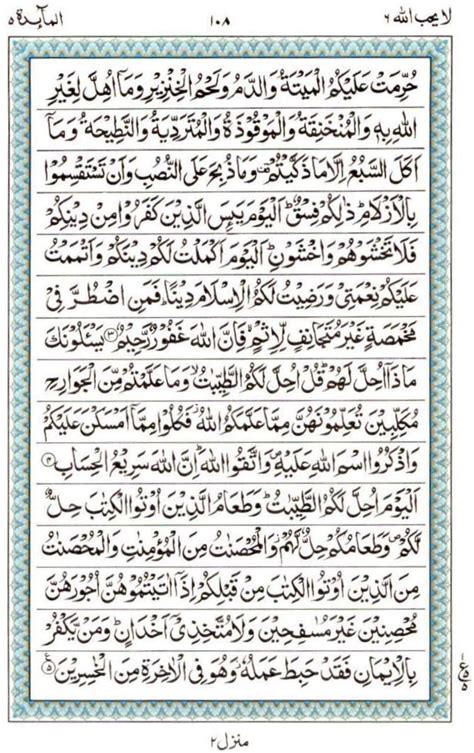 لا یحب الله ۶
۱۰۸
المآئدة ۵
حُرِّمَتْ عَلَيْكُمُ الْمَيْتَةُ وَالدَّمُ وَلَحْمُ الْخِنْزِيْرِ وَمَاۤ اُهِلَّ لِغَيْرِ
اللّٰهِ بِهٖ وَالْمُنْخَنِقَةُ وَالْمَوْقُوْذَةُ وَالْمُتَرَدِّيَةُ وَالنَّطِيْحَةُ وَمَاۤ
اَكَلَ السَّبُعُ اِلَّا مَا ذَكَّيْتُمْ وَمَا ذُبِحَ عَلَى النُّصُبِ وَاَنْ تَسْتَقْسِمُوْا
بِالْاَزْلَامِ ؕ ذٰلِكُمْ فِسْقٌ ؕ اَلْيَوْمَ يَئِسَ الَّذِيْنَ كَفَرُوْا مِنْ دِيْنِكُمْ
فَلَا تَخْشَوْهُمْ وَاخْشَوْنِ ؕ اَلْيَوْمَ اَكْمَلْتُ لَكُمْ دِيْنَكُمْ وَاَتْمَمْتُ
عَلَيْكُمْ نِعْمَتِيْ وَرَضِيْتُ لَكُمُ الْاِسْلَامَ دِيْنًا ؕ فَمَنِ اضْطُرَّ فِيْ
مَخْمَصَةٍ غَيْرَ مُتَجَانِفٍ لِّاِثْمٍ ۙ فَاِنَّ اللّٰهَ غَفُوْرٌ رَّحِيْمٌ ۳ يَسْـَٔلُوْنَكَ
مَاذَاۤ اُحِلَّ لَهُمْ ؕ قُلْ اُحِلَّ لَكُمُ الطَّيِّبٰتُ ۙ وَمَا عَلَّمْتُمْ مِّنَ الْجَوَارِحِ
مُكَلِّبِيْنَ تُعَلِّمُوْنَهُنَّ مِمَّا عَلَّمَكُمُ اللّٰهُ ؗ فَكُلُوْا مِمَّاۤ اَمْسَكْنَ عَلَيْكُمْ
وَاذْكُرُوا اسْمَ اللّٰهِ عَلَيْهِ ۪ وَاتَّقُوا اللّٰهَ ؕ اِنَّ اللّٰهَ سَرِيْعُ الْحِسَابِ ۴
اَلْيَوْمَ اُحِلَّ لَكُمُ الطَّيِّبٰتُ ؕ وَطَعَامُ الَّذِيْنَ اُوْتُوا الْكِتٰبَ حِلٌّ
لَّكُمْ ۪ وَطَعَامُكُمْ حِلٌّ لَّهُمْ ؗ وَالْمُحْصَنٰتُ مِنَ الْمُؤْمِنٰتِ وَالْمُحْصَنٰتُ
مِنَ الَّذِيْنَ اُوْتُوا الْكِتٰبَ مِنْ قَبْلِكُمْ اِذَاۤ اٰتَيْتُمُوْهُنَّ اُجُوْرَهُنَّ
مُحْصِنِيْنَ غَيْرَ مُسٰفِحِيْنَ وَلَا مُتَّخِذِيْۤ اَخْدَانٍ ؕ وَمَنْ يَّكْفُرْ
بِالْاِيْمَانِ فَقَدْ حَبِطَ عَمَلُهٗ ؗ وَهُوَ فِي الْاٰخِرَةِ مِنَ الْخٰسِرِيْنَ ۵
منزل ۲